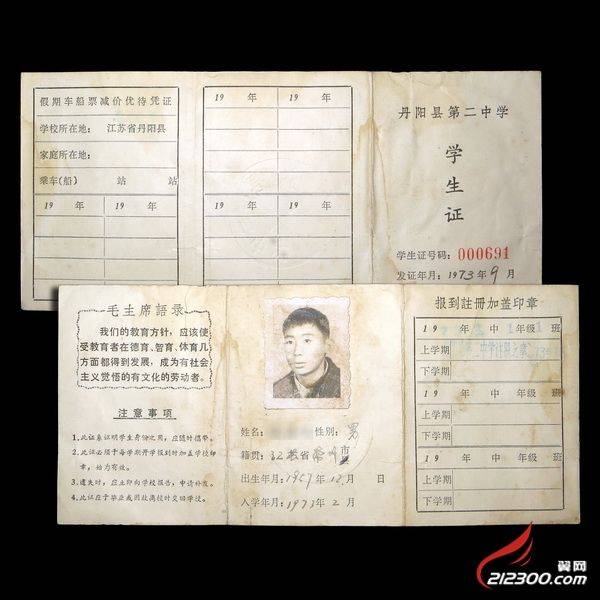 假期车船票减价优待凭证
学校所在地: 江苏省丹阳县
家庭所在地:
乘车(船) 站 站
19 年 19 年
19 年 19 年
19 年 19 年
丹阳县第二中学
学
生
证
学生证号码: 000691
发证年月: 1973年9月
毛主席語录
我们的教育方针，应该使
受教育者在德育、智育、体育几
方面都得到发展，成为有社会
主义觉悟的有文化的劳动者。
注意事项
1.此证系证明学生身份之用，应随时携带。
2.此证必须于每学期开学报到时加盖学校印
章，始为有效。
3.遗失时，应立即向学校报告，申请补发。
4.此证应于毕业或因故离校时交回学校。
姓名: 性别: 男
籍贯: 江苏省 市
出生年月: 1957年12月 日
入学年月: 1973年2月
报到註冊加盖印章
19 年 1 班
上学期
下学期
19 年 中 年级 班
上学期
下学期
19 年 中 年级 班
上学期
下学期
翼网
212300.com